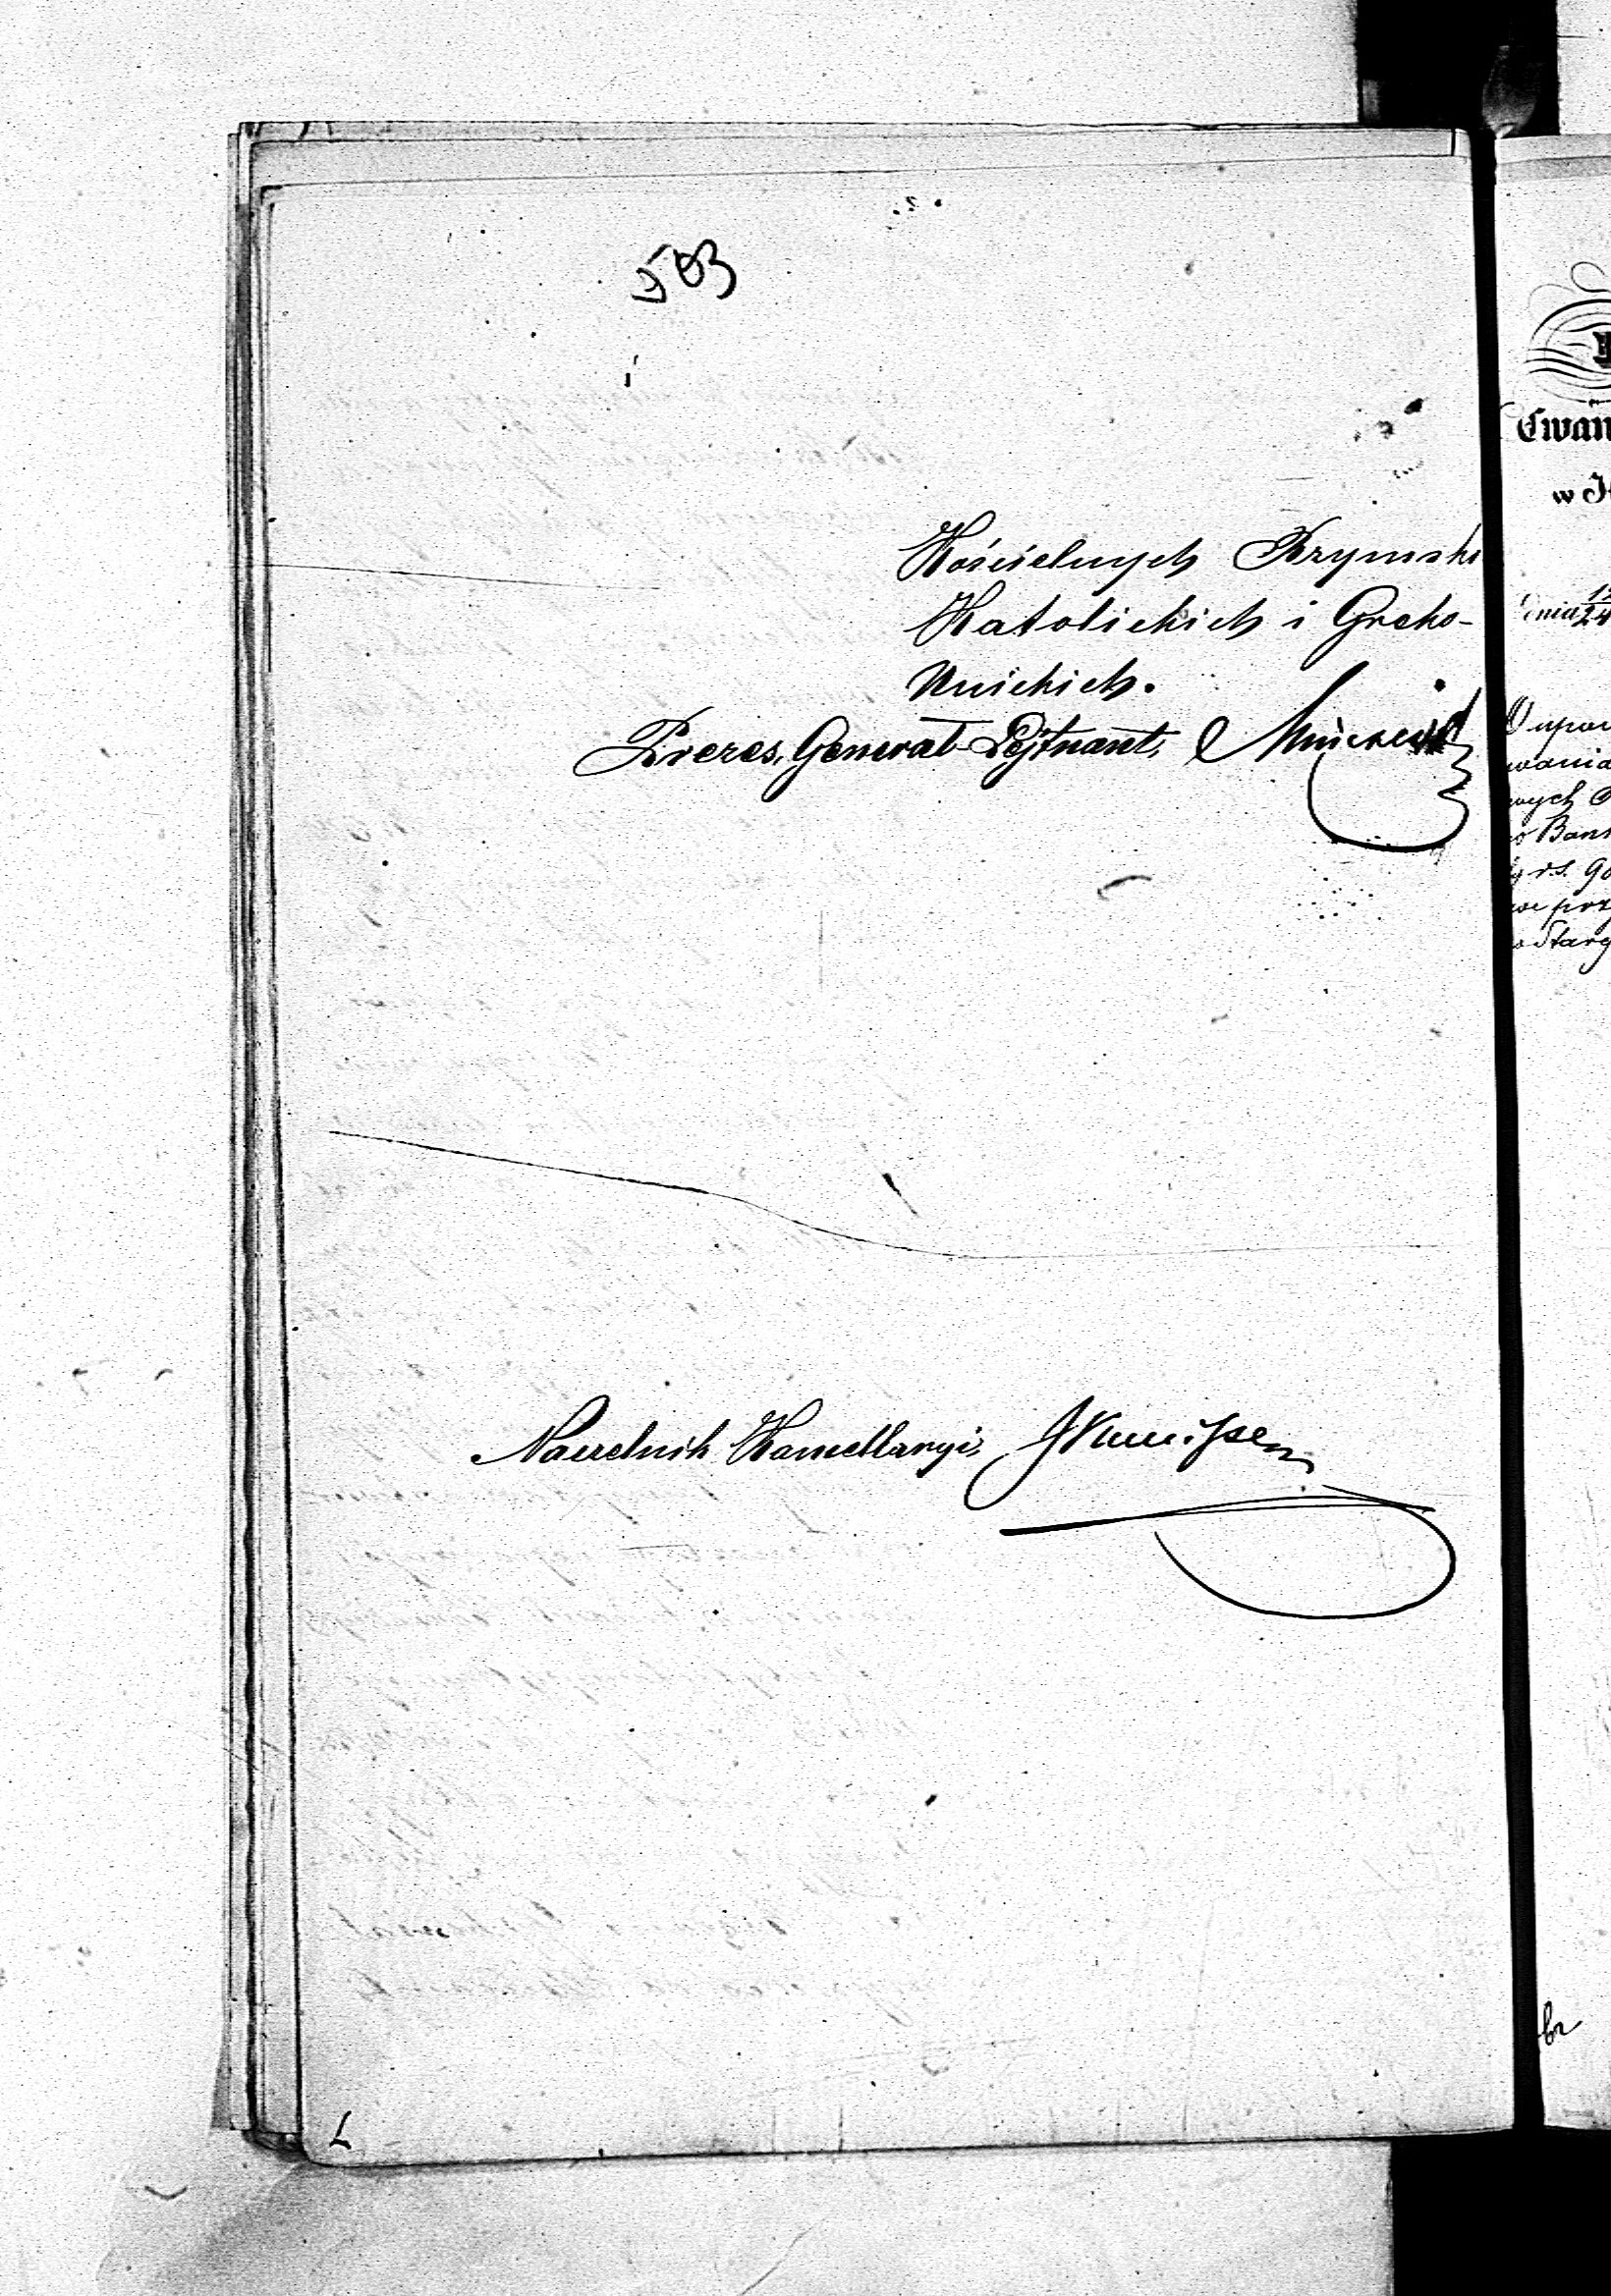 503
Kościelnych Rzymsko
Katolickich i Greko-
Unickich.
Prezes, Generał-Lejtnant,
Naczelnik Kancellaryi,
Ewan
w K
dnia 12/24
O upow
wania
wych
Bank
rs. 90
we prz
Targ
br
L